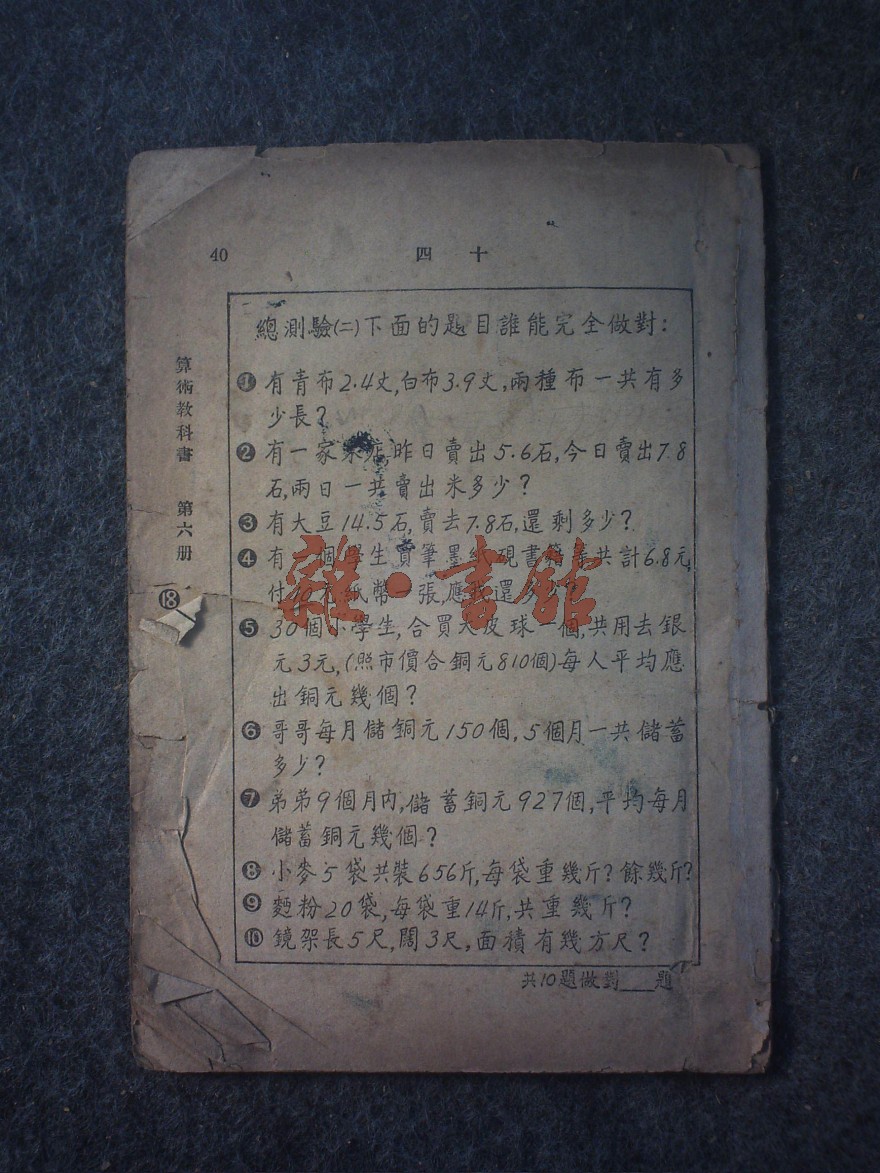 40
四十
總測驗(二)下面的題目誰能完全做對:
❶有青布2.4丈,白布3.9丈,兩種布一共有多
少長?
❷有一家米店,昨日賣出5.6石,今日賣出7.8
石,兩日一共賣出米多少?
❸有大豆14.5石,賣去7.8石,還剩多少?
❹有一個學生買筆墨紙硯書籍等共計6.8元,
付10元紙幣一張,應找還多少?
❺30個小學生,合買大皮球一個,共用去銀
元3元,(照市價合銅元810個)每人平均應
出銅元幾個?
❻哥哥每月儲銅元150個,5個月一共儲蓄
多少?
❼弟弟9個月內,儲蓄銅元927個,平均每月
儲蓄銅元幾個?
❽小麥5袋共裝656斤,每袋重幾斤?餘幾斤?
❾麵粉20袋,每袋重14斤,共重幾斤?
❿鏡架長5尺,闊3尺,面積有幾方尺?
共10題做對___題
算術教科書 第六册
⑱
雜·書館